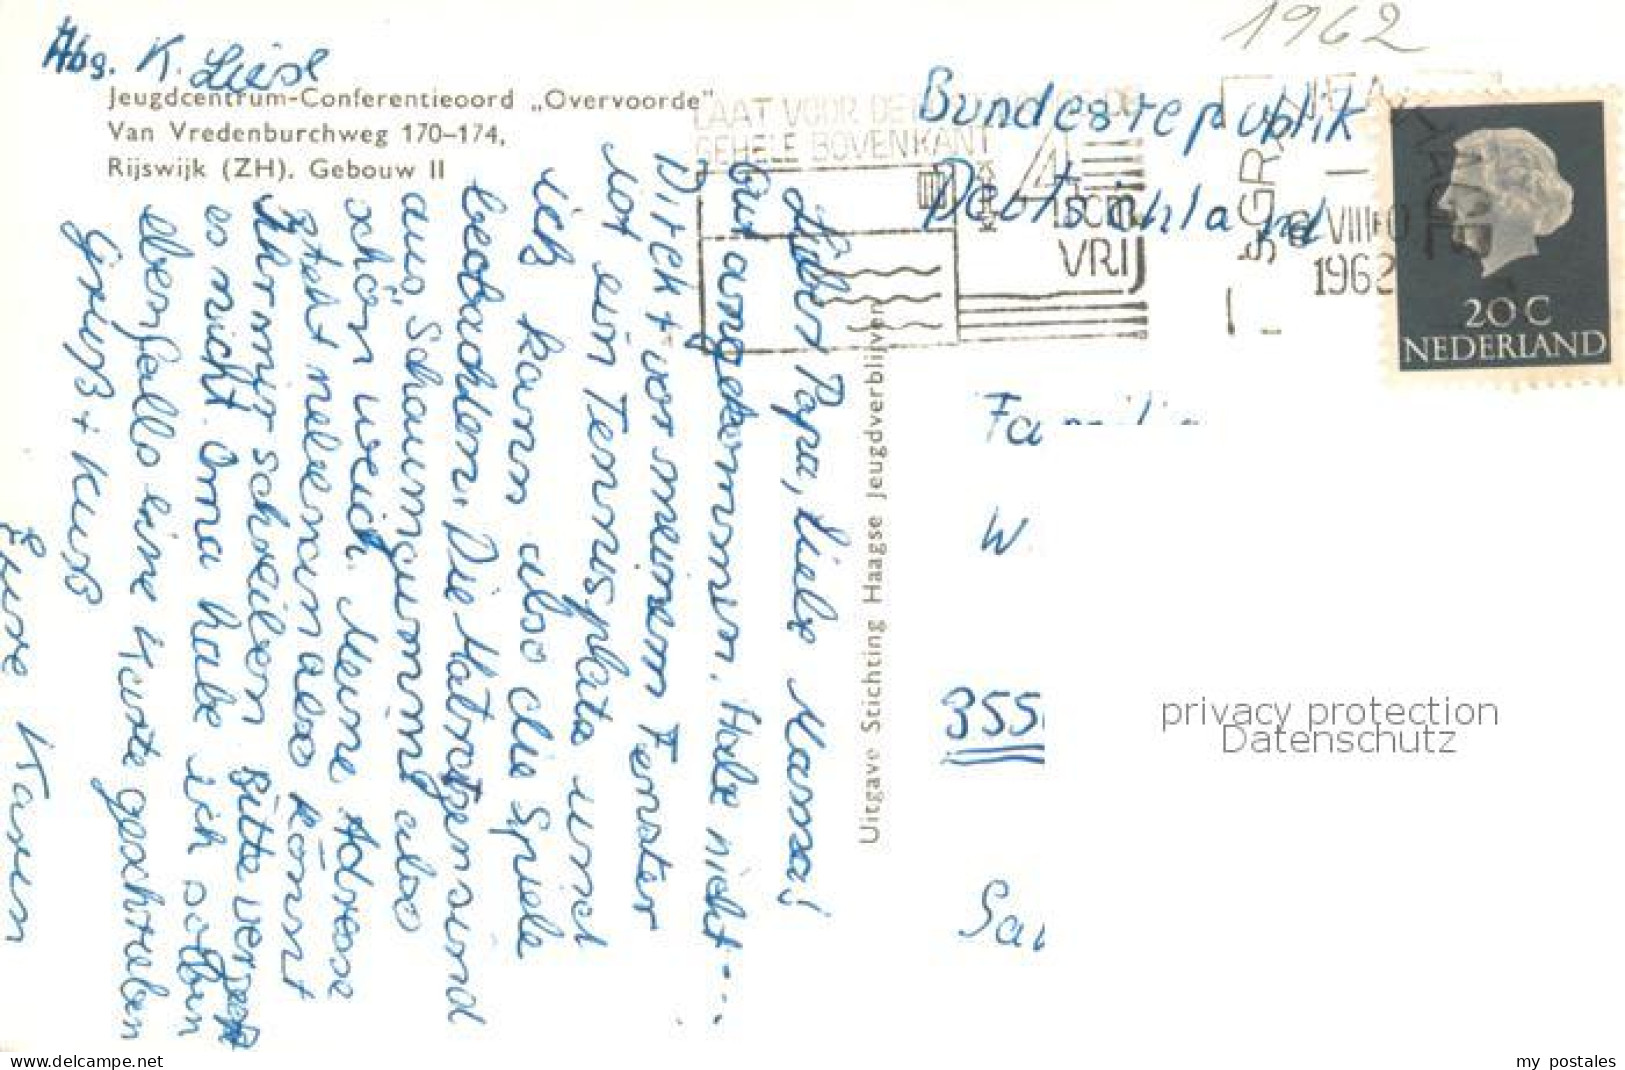 1962
Abs. K. Liese
Jeugdcentrum-Conferentieoord „Overvoorde”
Van Vredenburchweg 170-174,
Rijswijk (ZH). Gebouw II
LAAT VOOR DE
GEHELE BOVENKANT
4
VRIJ
'SGRAVENHAGE
VIII
1962
20 C
NEDERLAND
Bundesrepublik
Deutschland
Lieber Papa, liebe Mama!
Gut angekommen. Habe nicht....
Direkt vor meinem Fenster
ist ein Tennisplatz und
ich kann also die Spiele
beobachten. Die Matratzen sind
aus Schaumgummi also
schön weich. Meine Adresse
steht nebenan also könnt
Ihr mir schreiben. Bitte vergeßt
es nicht. Oma habe ich soeben
ebenfalls eine Karte geschrieben
Gruß + Kuss
Eure Karen
Uitgave Stichting Haagse Jeugdverblijven
Familie
W
355
Sa
privacy protection
Datenschutz
www.delcampe.net
my_postales